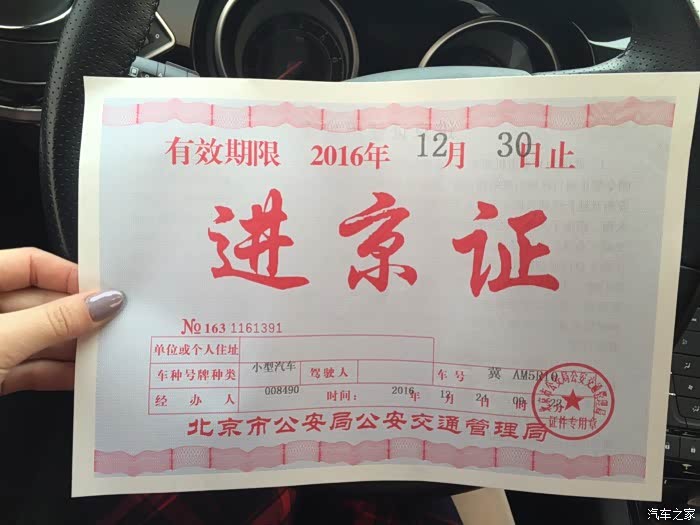 有效期限 2016年 12月 30日止
进京证
№ 163 1161391
单位或个人住址
车种号牌种类 小型汽车 驾驶人 车号 冀
经办人 008490 时间: 2016年 12月 24日
北京市公安局公安交通管理局
证件专用章
汽车之家